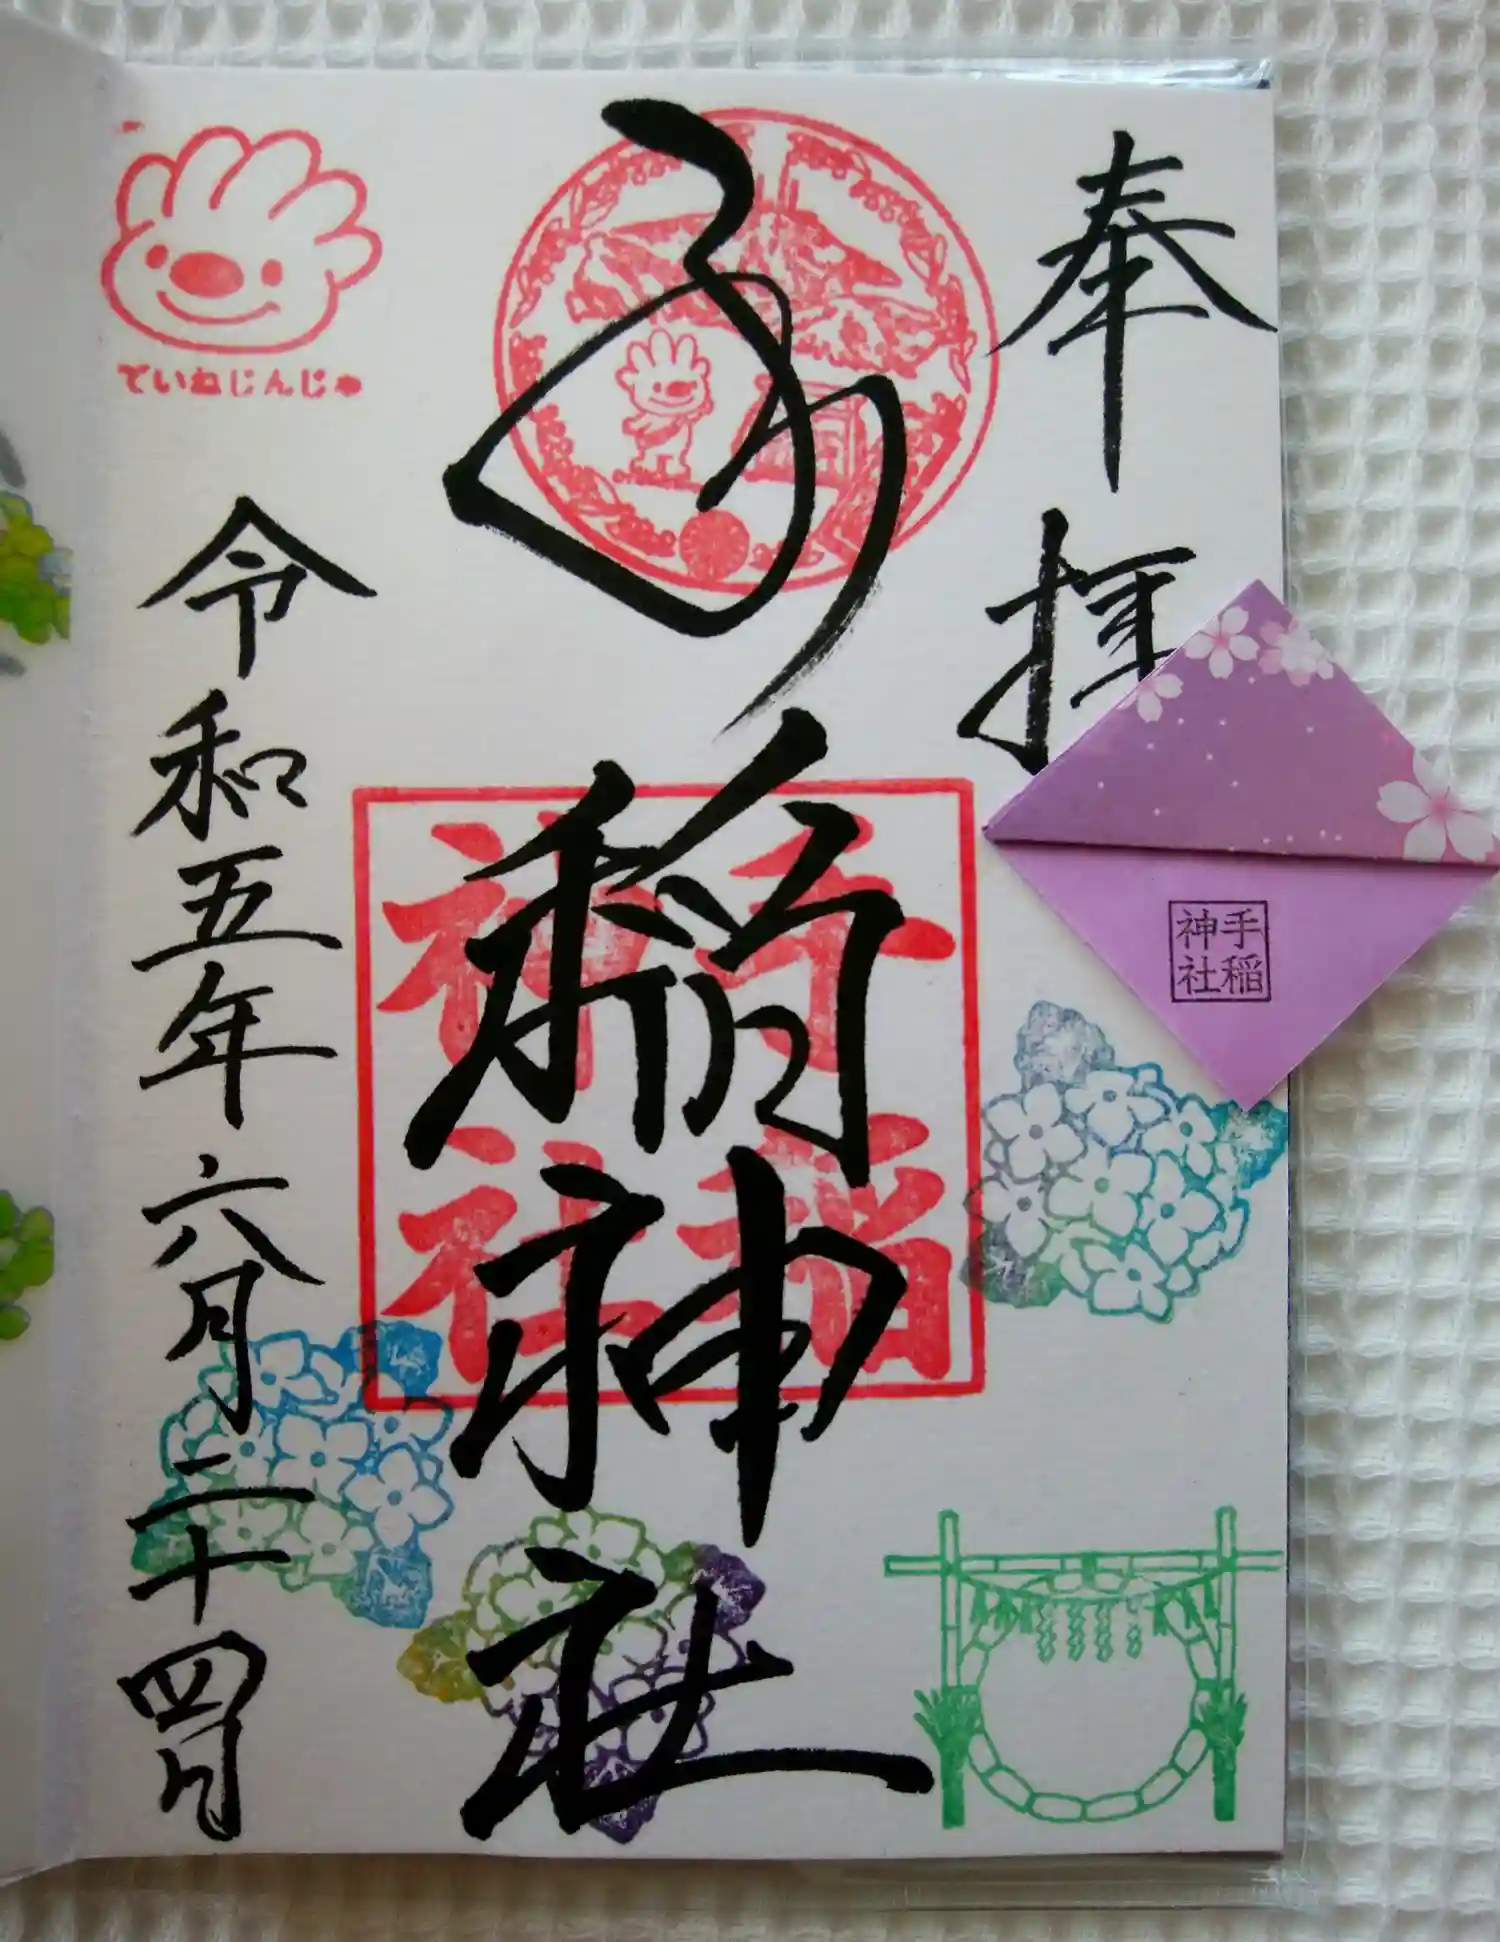 奉拝
手稲神社
手稲神社
ていねじんじゃ
令和五年六月二十四日
手稲
神社